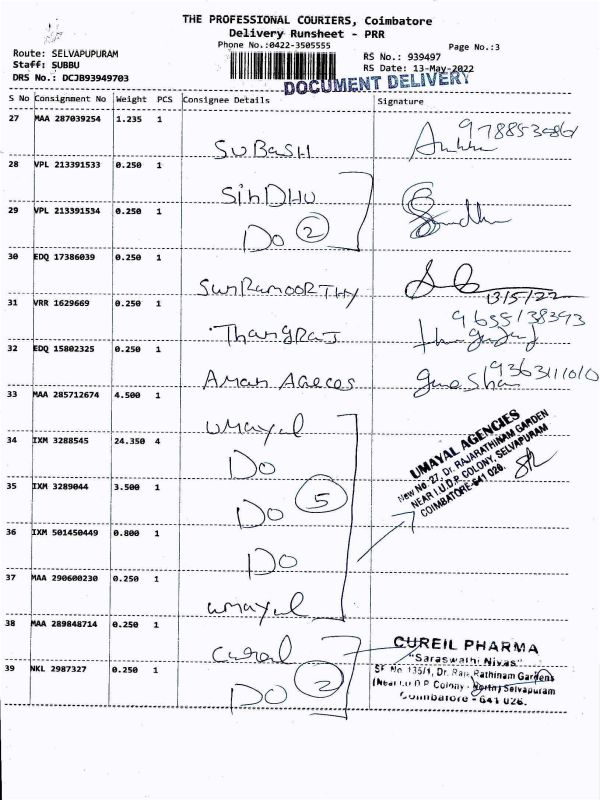 THE PROFESSIONAL COURIERS, Coimbatore
Delivery Runsheet - PRR
Phone No.:0422-3505555
Page No.:3
Route: SELVAPUPURAM
Staff: SUBBU
DRS No.: DCJB93949703
RS No.: 939497
RS Date: 13-May-2022
DOCUMENT DELIVERY
S No Consignment No Weight PCS Consignee Details Signature
27 MAA 287039254 1.235 1 SUBASH
28 VPL 213391533 0.250 1 SINDHU
29 VPL 213391534 0.250 1 DO 2
30 EDQ 17386039 0.250 1 SUNRAMOORTHY 13/5/22
31 VRR 1629669 0.250 1 THANGRAJ 9655138393
32 EDQ 15802325 0.250 1 9363111010
33 MAA 285712674 4.500 1 umayal
34 IXM 3288545 24.350 4 DO
35 IXM 3289044 3.500 1 DO 5
36 IXM 501450449 0.800 1 DO
37 MAA 290600230 0.250 1 umayal
UMAYAL AGENCIES
New No. 27, Dr. RAJARATHINAM GARDEN
NEAR I.U.D.P. COLONY, SELVAPURAM
COIMBATORE-641 026.
38 MAA 289848714 0.250 1
39 NKL 2987327 0.250 1 DO 2
CUREIL PHARMA
"Saraswathi Nivas"
SF No. 136/1, Dr. Raja Rathinam Gardens
(Near I.U.D.P. Colony - North) Selvapuram
Coimbatore - 641 026.